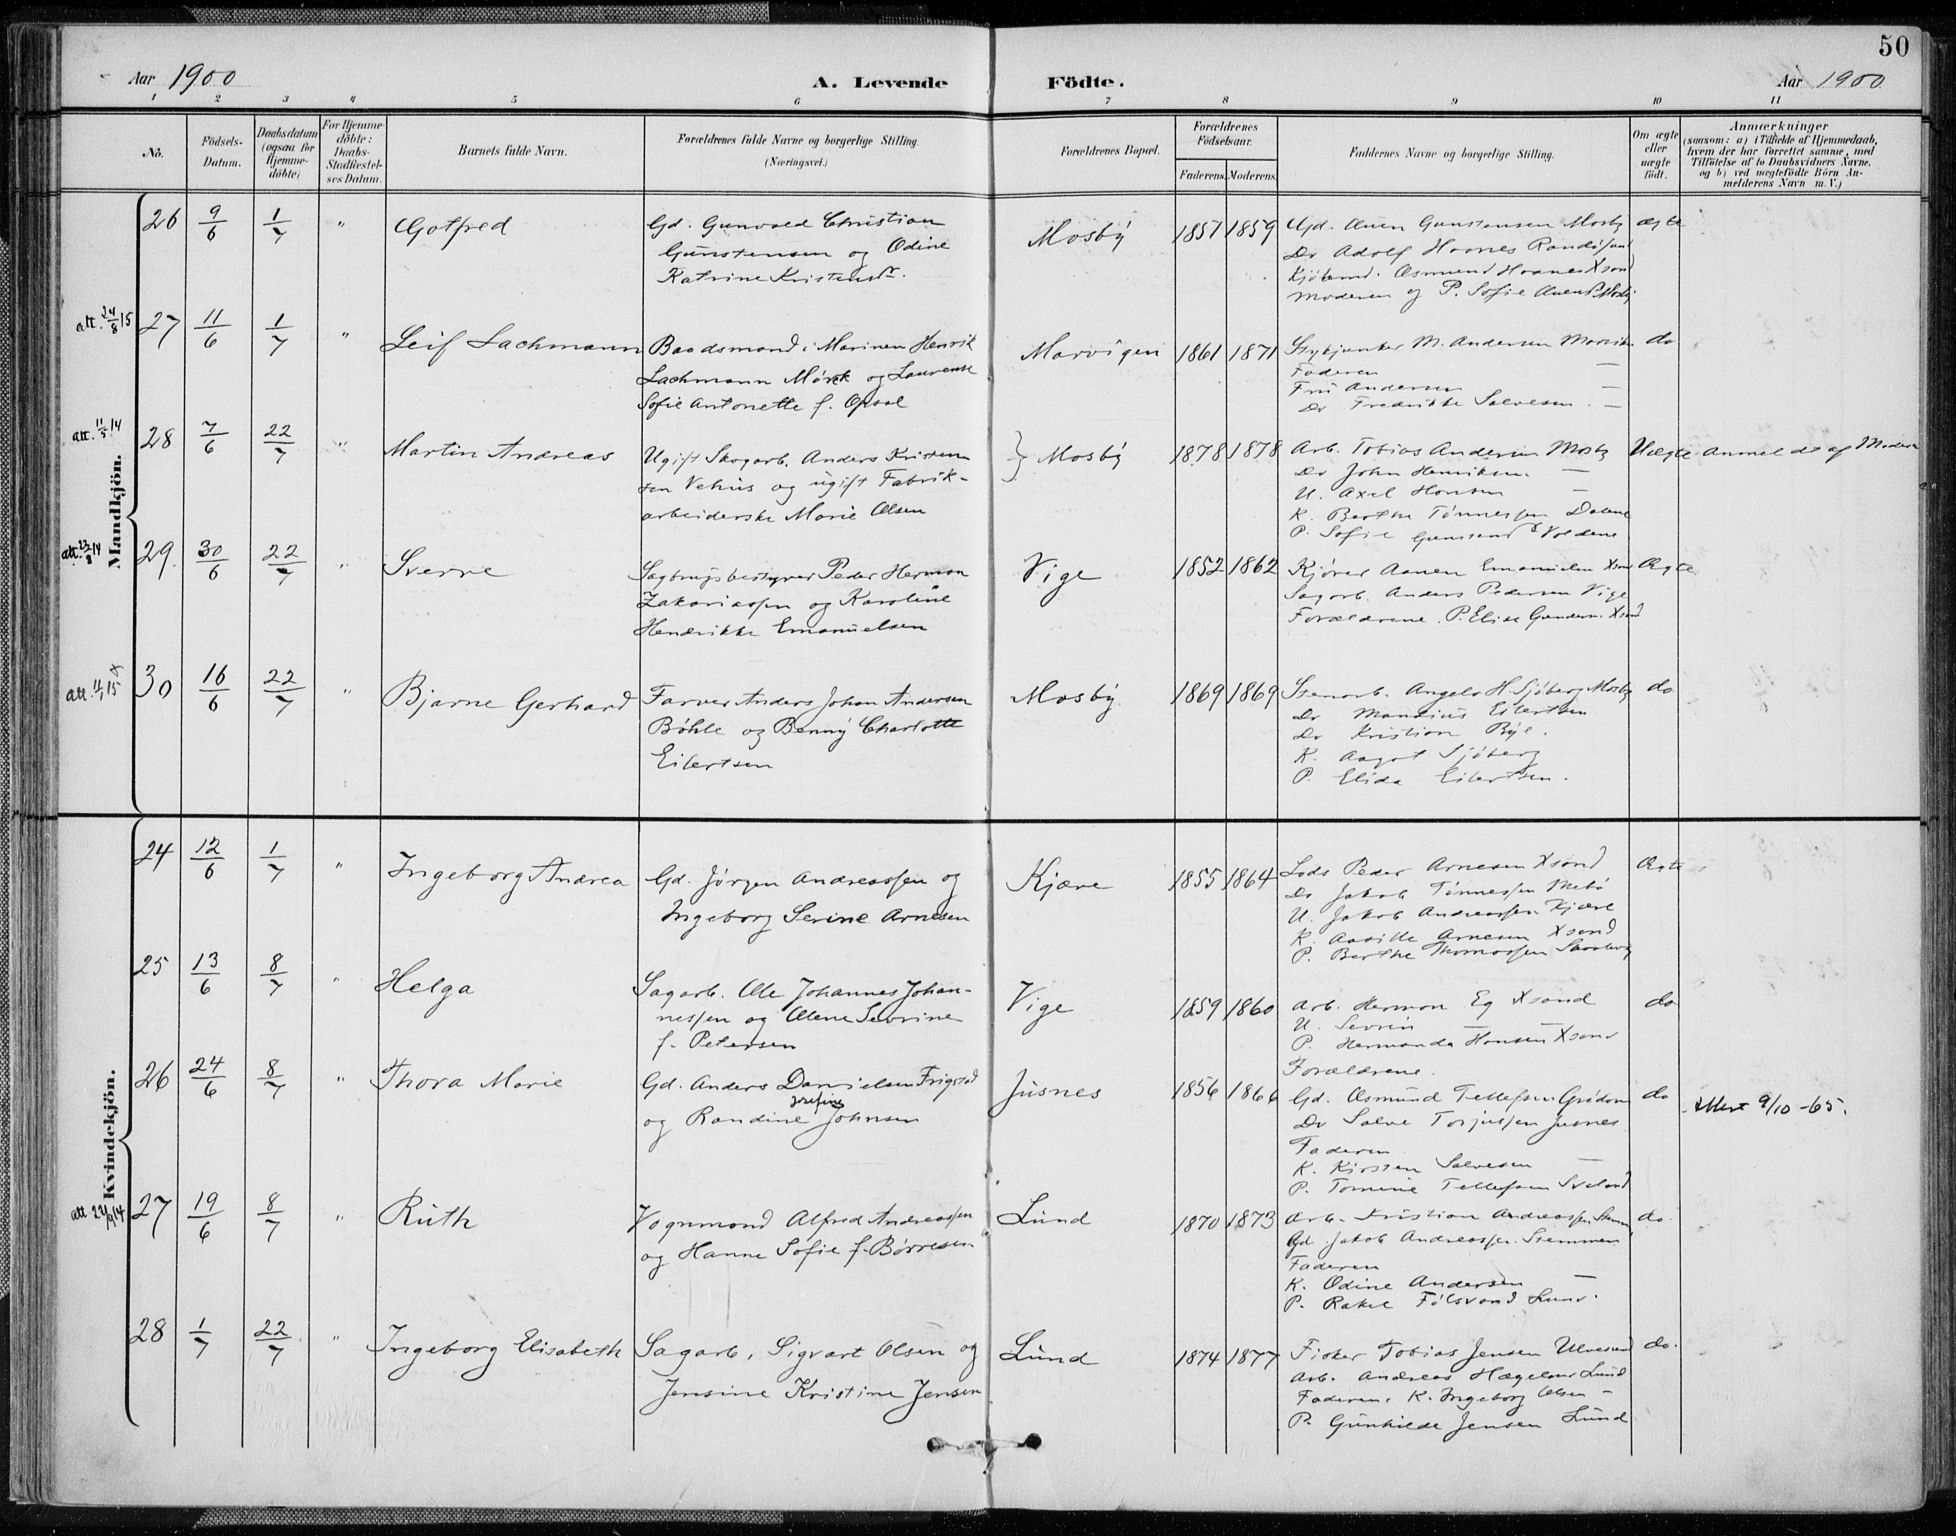 50
Aar 1900
A. Levende Födte.
Aar 1900
1 2 3 4 5 6 7 8 9 10 11
No.
Födsels-Datum.
Daabsdatum (ogsaa for Hjemme-döbte)
For Hjemme-döbte: Daabs-Stadfæstel-ses Datum.
Barnets fulde Navn.
Forældrenes fulde Navne og borgerlige Stilling.
(Næringsvei.)
Forældrenes Bopæl.
Forældrenes Födselsaar.
Faderens. Moderens.
Faddernes Navne og borgerlige Stilling.
Om ægte eller uægte födt.
Anmærkninger
(saasom: a) i Tilfælde af Hjemmedaab,
hvem der har forrettet samme, med
Tilföielse af to Daabsvidners Navne,
og b) ved uægtefödte Börn An-
melderens Navn m. V.)
Mandkjön.
26 9/6 1/7 " Gotfred
Gd. Gunvald Christian
Gunstensen og Odine
Katrine Kristensdr.
Mosby 1857 1859
Gd. Auen Gunstensen Mosby
Do Adolf Hornes Randøsund
Kjøbmd. Osmund Hornes Xsand
Moderen og P. Sofie Auensd. Mosby
ægte
att. 24/8 15
27 11/6 1/7 " Leif Lachmann
Baadsmand i Marinen Henrik
Lachmann Mørck og Laurense
Sofie Antonette f. Opsal
Marvigen 1861 1871
Stykjunker M. Andersen Marvik
Faderen —
Fru Andersen —
Do Fredrikke Salvesen. —
do
att. 11/5 14
28 7/6 22/7 " Martin Andreas
Ugift Skogarb. Anders Kristen
sen Vehus og ugift Fabrik-
arbeiderske Marie Olsen
} Mosby 1878 1878
Arb. Tobias Andersen Mosby
Do John Henriksen. —
U. Axel Hansen —
K. Berthe Tønnessen Dalene
P. Sofie Voldene
Uægte Anmeldt af Moderen
att. 23/8 14
29. 30/6 22/7 " Sverre
Sagbrugsbestyrer Peder Herman
Zakariassen og Karoline
Hendrikke Emanuelsen
Vige 1852 1862
Kjører Aanen Emanuelsen Xsand
Sagarb. Anders Pedersen Vige
Forældrene. P. Elise Gundersen Xsand
Ægte
att. 11/1 15 x
30 16/6 22/7 " Bjarne Gerhard
Farver Anders Johan Andersen
Bøhle og Benny Charlotte
Eilertsen
Mosby 1869 1869
Stenarb. Angelo H. Sjøberg Mosby
Do Mandius Eilertsen
Do Kristian Bye.
K. Aagot Sjøberg
P. Elida Eilertsen.
do
Kvindekjön.
24 12/6 1/7 " Ingeborg Andrea
Gd. Jørgen Andreassen og
Ingeborg Serine Arnesen
Kjære 1855 1864
Lods Peder Arnesen Xsand
Do Jakob Tønnessen Mebø
U. Jakob Andreassen Kjære
K. Aasille Arnesen Xsand
P. Berthe Thomassen
Ægte
25 13/6 8/7 " Helga
Sagarb. Ole Johannes Johan-
nessen og Olene Sevrine
f. Petersen
Vige 1859 1860
Arb. Herman Eg Xsand
U. Sevrin — —
P. Hermanda Hansen Xsand
Forældrene.
do
26 24/6 8/7 " Thora Marie
Gd. Anders Danielsen Frigstad
og Randine Josefine Johnsen
Jusnes 1856 1866
Gd. Osmund Tellefsen Grødum
Do Salve Torjussen Jusnes
Faderen
K. Kirsten Salvesen —
P. Tomine Tellefsen Sveland
do
Attest 9/10 -65.
att 22/9 14
27 19/6 8/7 " Ruth
Vognmand Alfred Andreassen
og Hanne Sofie f. Børresen
Lund 1870 1873
Arb. Kristian Andreassen
Gd Jakob Andreassen Stemmen
Faderen
K. Odine Andersen —
P. Rakel Følsvand Lund.
do.
28 1/7 22/7 " Ingeborg Elisabeth
Sagarb. Sigvart Olsen og
Jensine Kristine Jensen
Lund 1874 1877
Fisker Tobias Jensen Ulvesund
Arb. Andreas Hægeland Lund
Faderen. K. Ingeborg Olsen —
P. Gunhilde Jensen Lund
do.